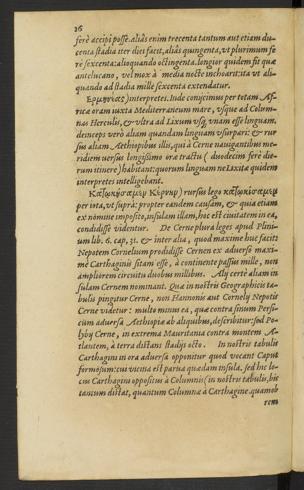 26
ferè accipi posse. aliàs enim trecenta tantum aut etiam du-
centa stadia iter diei facit, aliàs quingenta, vt plurimum fe
rè sexcenta: alioquando octingenta. longior quidem fit quæ
antelucano, vel mox à media nocte inchoarit: ita vt ali-
quando ad stadia mille sexcenta extendatur.
Ερμηνέας) interpretes. Inde conijcimus per totam Af-
ricæ oram iuxta Mediterraneum mare, vsque ad Colum-
nas Herculis, & vltra ad Lixum vsq; vnam esse linguam,
deinceps verò aliam quandam linguam vsurpari: & rur
sus aliam Aethiopibus illis, qui à Cerne nauigantibus me-
ridiem versus longissimo oræ tractu (duodecim ferè die-
rum itinere) habitant: quorum linguam ne Lixitæ quidem
interpretes intelligebant.
Κατῳκήσαμεν Κέρνην) rursus lego κατῳκίσαμεν
per iota, vt suprà: propter eandem causam, & quia etiam
ex nomine imposito, insulam illam, hoc est ciuitatem in ea,
condidisse videntur. De Cerne plura leges apud Plini-
um lib. 6. cap. 31. & inter alia, quod maximè huc facit:
Nepotem Cornelium prodidisse Cernen ex aduerso maxi-
mè Carthaginis sitam esse, à continente passus mille, non
ampliorem circuitu duobus millibus. Alij certè aliam in
sulam Cernem nominant. Quæ in nostris Geographicis ta-
bulis pingitur Cerne, non Hannonis aut Cornelij Nepotis
Cerne videtur: multo minus ea, quæ contra sinum Persi-
cum aduersa Aethiopiæ ab aliquibus, describitur: sed Po-
lybij Cerne, in extrema Mauritania contra montem A-
tlantem, à terra distans stadijs octo. In nostris tabulis
Carthagini in ora aduersa opponitur quod vocant Caput
formosum: cui vicina est parua quædam insula. sed hic lo-
cus Carthagini oppositus à Columnis (in nostris tabulis, bis
tantum distat, quantum Columnæ à Carthagine. quamob
rem